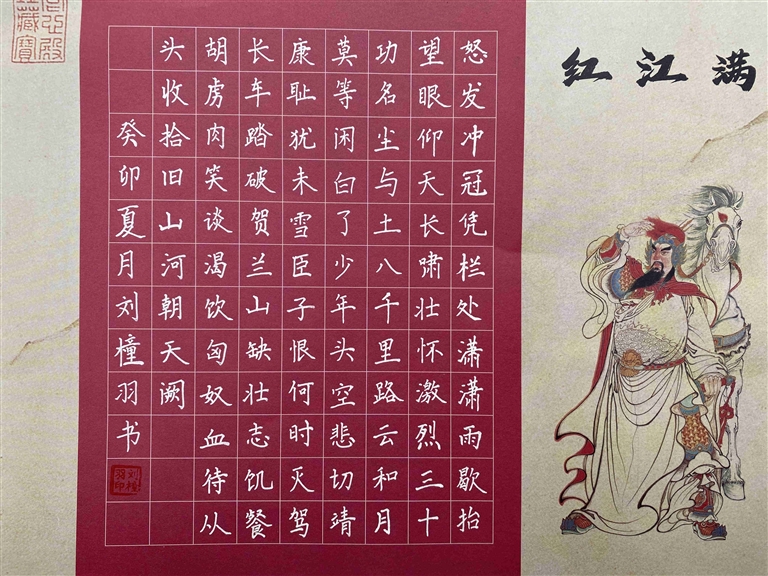 满江红
怒发冲冠凭栏处潇潇雨歇抬
望眼仰天长啸壮怀激烈三十
功名尘与土八千里路云和月
莫等闲白了少年头空悲切靖
康耻犹未雪臣子恨何时灭驾
长车踏破贺兰山缺壮志饥餐
胡虏肉笑谈渴饮匈奴血待从
头收拾旧山河朝天阙
癸卯夏月刘橦羽书
刘橦羽印